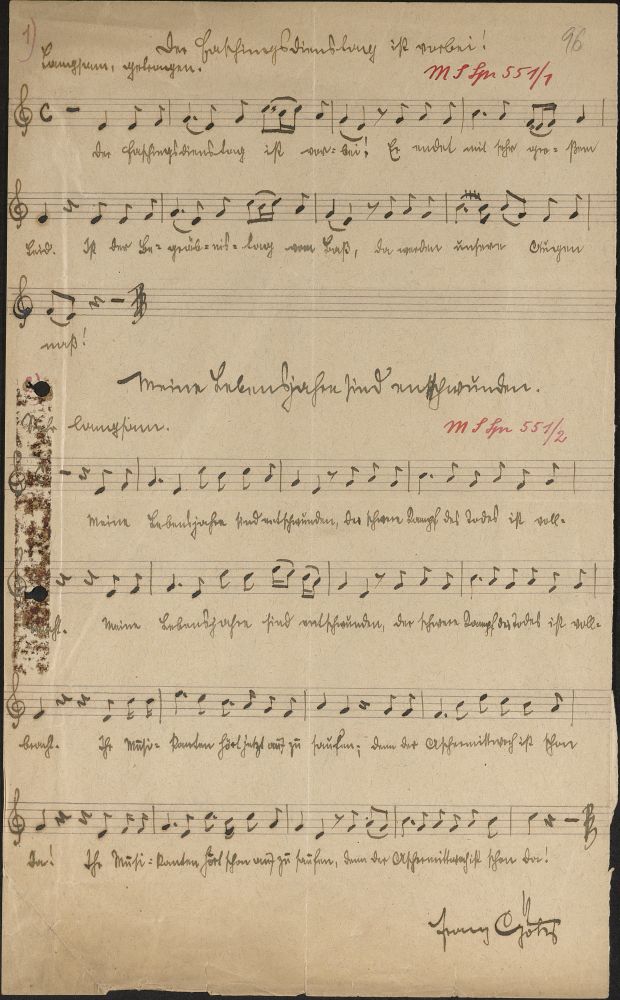 1) Der Faschingsdienstag ist vorbei! 96
Langsam, getragen. M S Spr 551/1
Der Faschingsdienstag ist vor-bei! Er endet mit sehr gro-ßem
Leid. Ist der Be-gräb-nis-tag vom Baß, da werden unsere Augen
naß!
Meine Lebensjahre sind entschwunden.
Sehr langsam. M S Spr 551/2
Meine Lebensjahre sind entschwunden, der schwere Kampf des Todes ist voll-
bracht. Meine Lebensjahre sind entschwunden, der schwere Kampf des Todes ist voll-
bracht. Ihr Musi-kanten hört jetzt auf zu saufen; denn der Aschermittwoch ist schon
da! Ihr Musi-kanten hört schon auf zu saufen, denn der Aschermittwoch ist schon da!
Franz